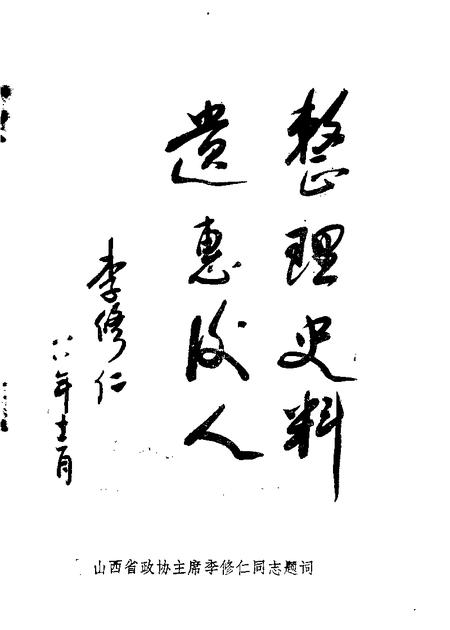 整理史料
遗惠后人
李修仁
八八年十一月
山西省政协主席李修仁同志题词